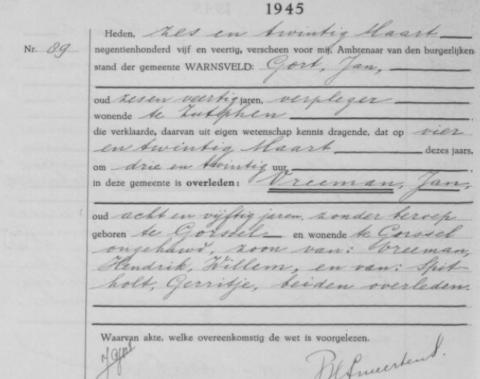 1945
Heden, zes en twintig Maart
Nr. 89 negentienhonderd vijf en veertig, verscheen voor mij, Ambtenaar van den burgerlijken
stand der gemeente WARNSVELD: Gort, Jan,
oud zesen veertig jaren, verpleger
wonende te Zutphen
die verklaarde, daarvan uit eigen wetenschap kennis dragende, dat op vier
en twintig Maart dezes jaars,
om drie en twintig uur
in deze gemeente is overleden: Vreeman, Jan,
oud acht en vijftig jaren, zonder beroep
geboren te Gorssel en wonende te Gorssel
ongehuwd, zoon van: Vreeman,
Hendrik, Willem, en van: Spit-
holt, Gerritje, beiden overleden.
Waarvan akte, welke overeenkomstig de wet is voorgelezen.
J Gort